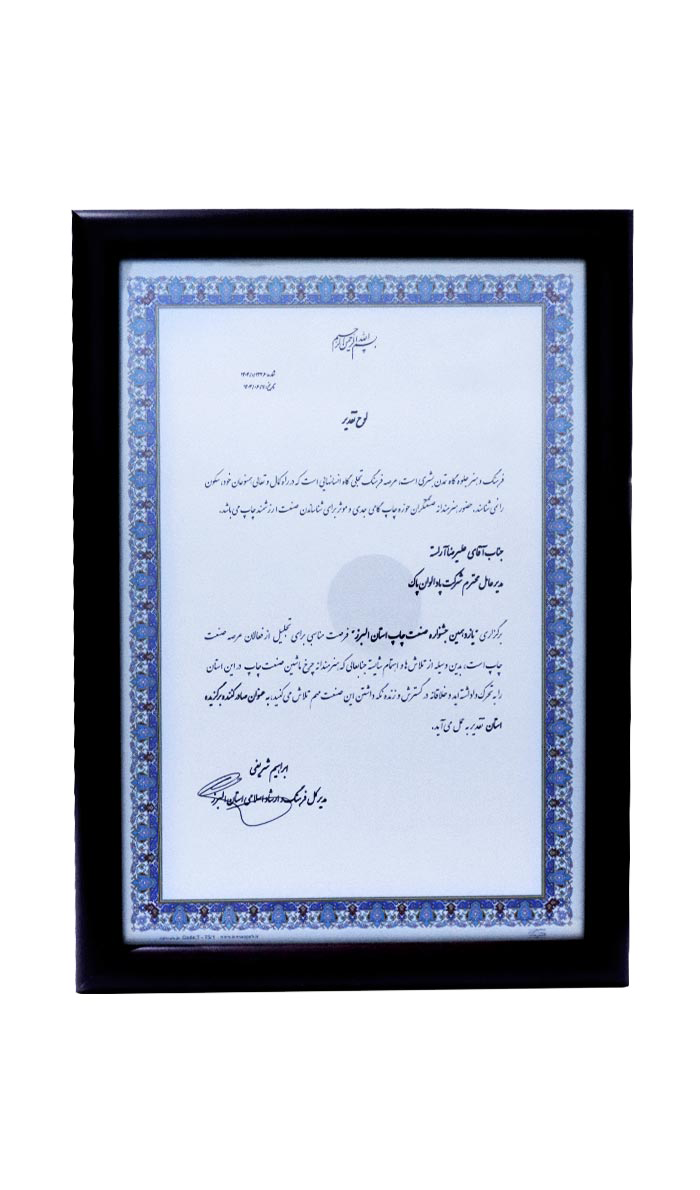 بسم الله الرحمن الرحیم
شماره:
تاریخ:
لوح تقدیر
فرهنگ و هنر جلوه گاه تمدن بشری است، عرصه فرهنگ تجلی گاه انسانهایی است که در راه کمال و تعالی همنوعان خود، سکون
را نمی شناسند. حضور هنرمندانه صنعتگران حوزه چاپ گامی جدی و موثر برای شناساندن صنعت ارزشمند چاپ می باشد.
جناب آقای علیرضا آراسته
مدیر عامل محترم شرکت پاد الوان پاک
برگزاری "یازدهمین جشنواره صنعت چاپ استان البرز" فرصت مناسبی برای تجلیل از فعالان عرصه صنعت
چاپ است، بدین وسیله از تلاش ها و اهتمام شایسته جنابعالی که هنرمندانه چرخ ماشین صنعت چاپ در این استان
را به تحرک واداشته اید و خلاقانه در گسترش و زنده نگه داشتن این صنعت مهم تلاش می کنید، به عنوان صادر کننده برگزیده
استان تقدیر به عمل می آید.
ابراهیم شریفی
مدیر کل فرهنگ و ارشاد اسلامی استان البرز